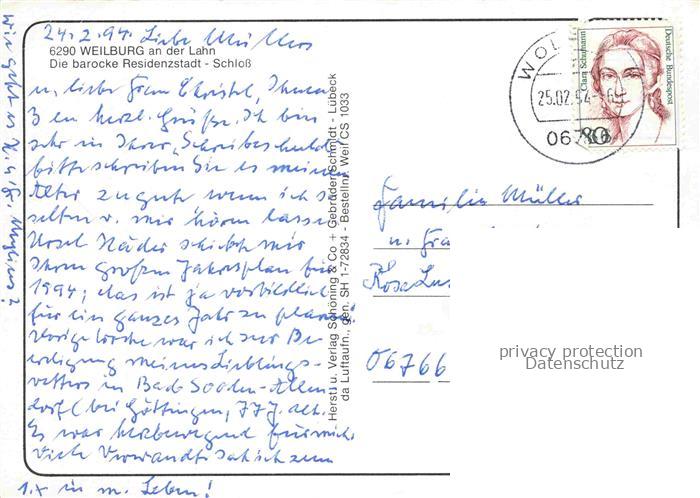 24.2.94. Liebe Müllers
6290 WEILBURG an der Lahn
Die barocke Residenzstadt - Schloß
u. liebe Frau Christel, Ihnen
3 en herzl. Grüße. Ich bin
sehr in Ihrer Schreibeschuld
bitte schreiben Sie es meinem
Alter zu gute wenn ich so
selten v. mir hören lasse.
Ursel Näder schickte mir
Ihren großen Jahresplan für
1994; das ist ja vorbildlich
für ein ganzes Jahr zu planen!
Vorige Woche war ich zur Be-
erdigung meines Lieblings-
vetters in Bad Sooden-Allen-
dorf (bei Göttingen, 77 J. alt.
Es war herzbewegend für mich.
Viele Verwandte sah ich zum
1. x in m. Leben!
Wie geht es
Herst. u. Verlag Schöning & Co + Gebrüder Schmidt - Lübeck
da Luftaufn., gen. SH 1-72834 - Bestellnr. Weil CS 1033
WOL
25.02.94
067
Clara Schumann
Deutsche Bundespost
80
Familie Müller
u. Fra
Rosa Lux
06766
privacy protection
Datenschutz